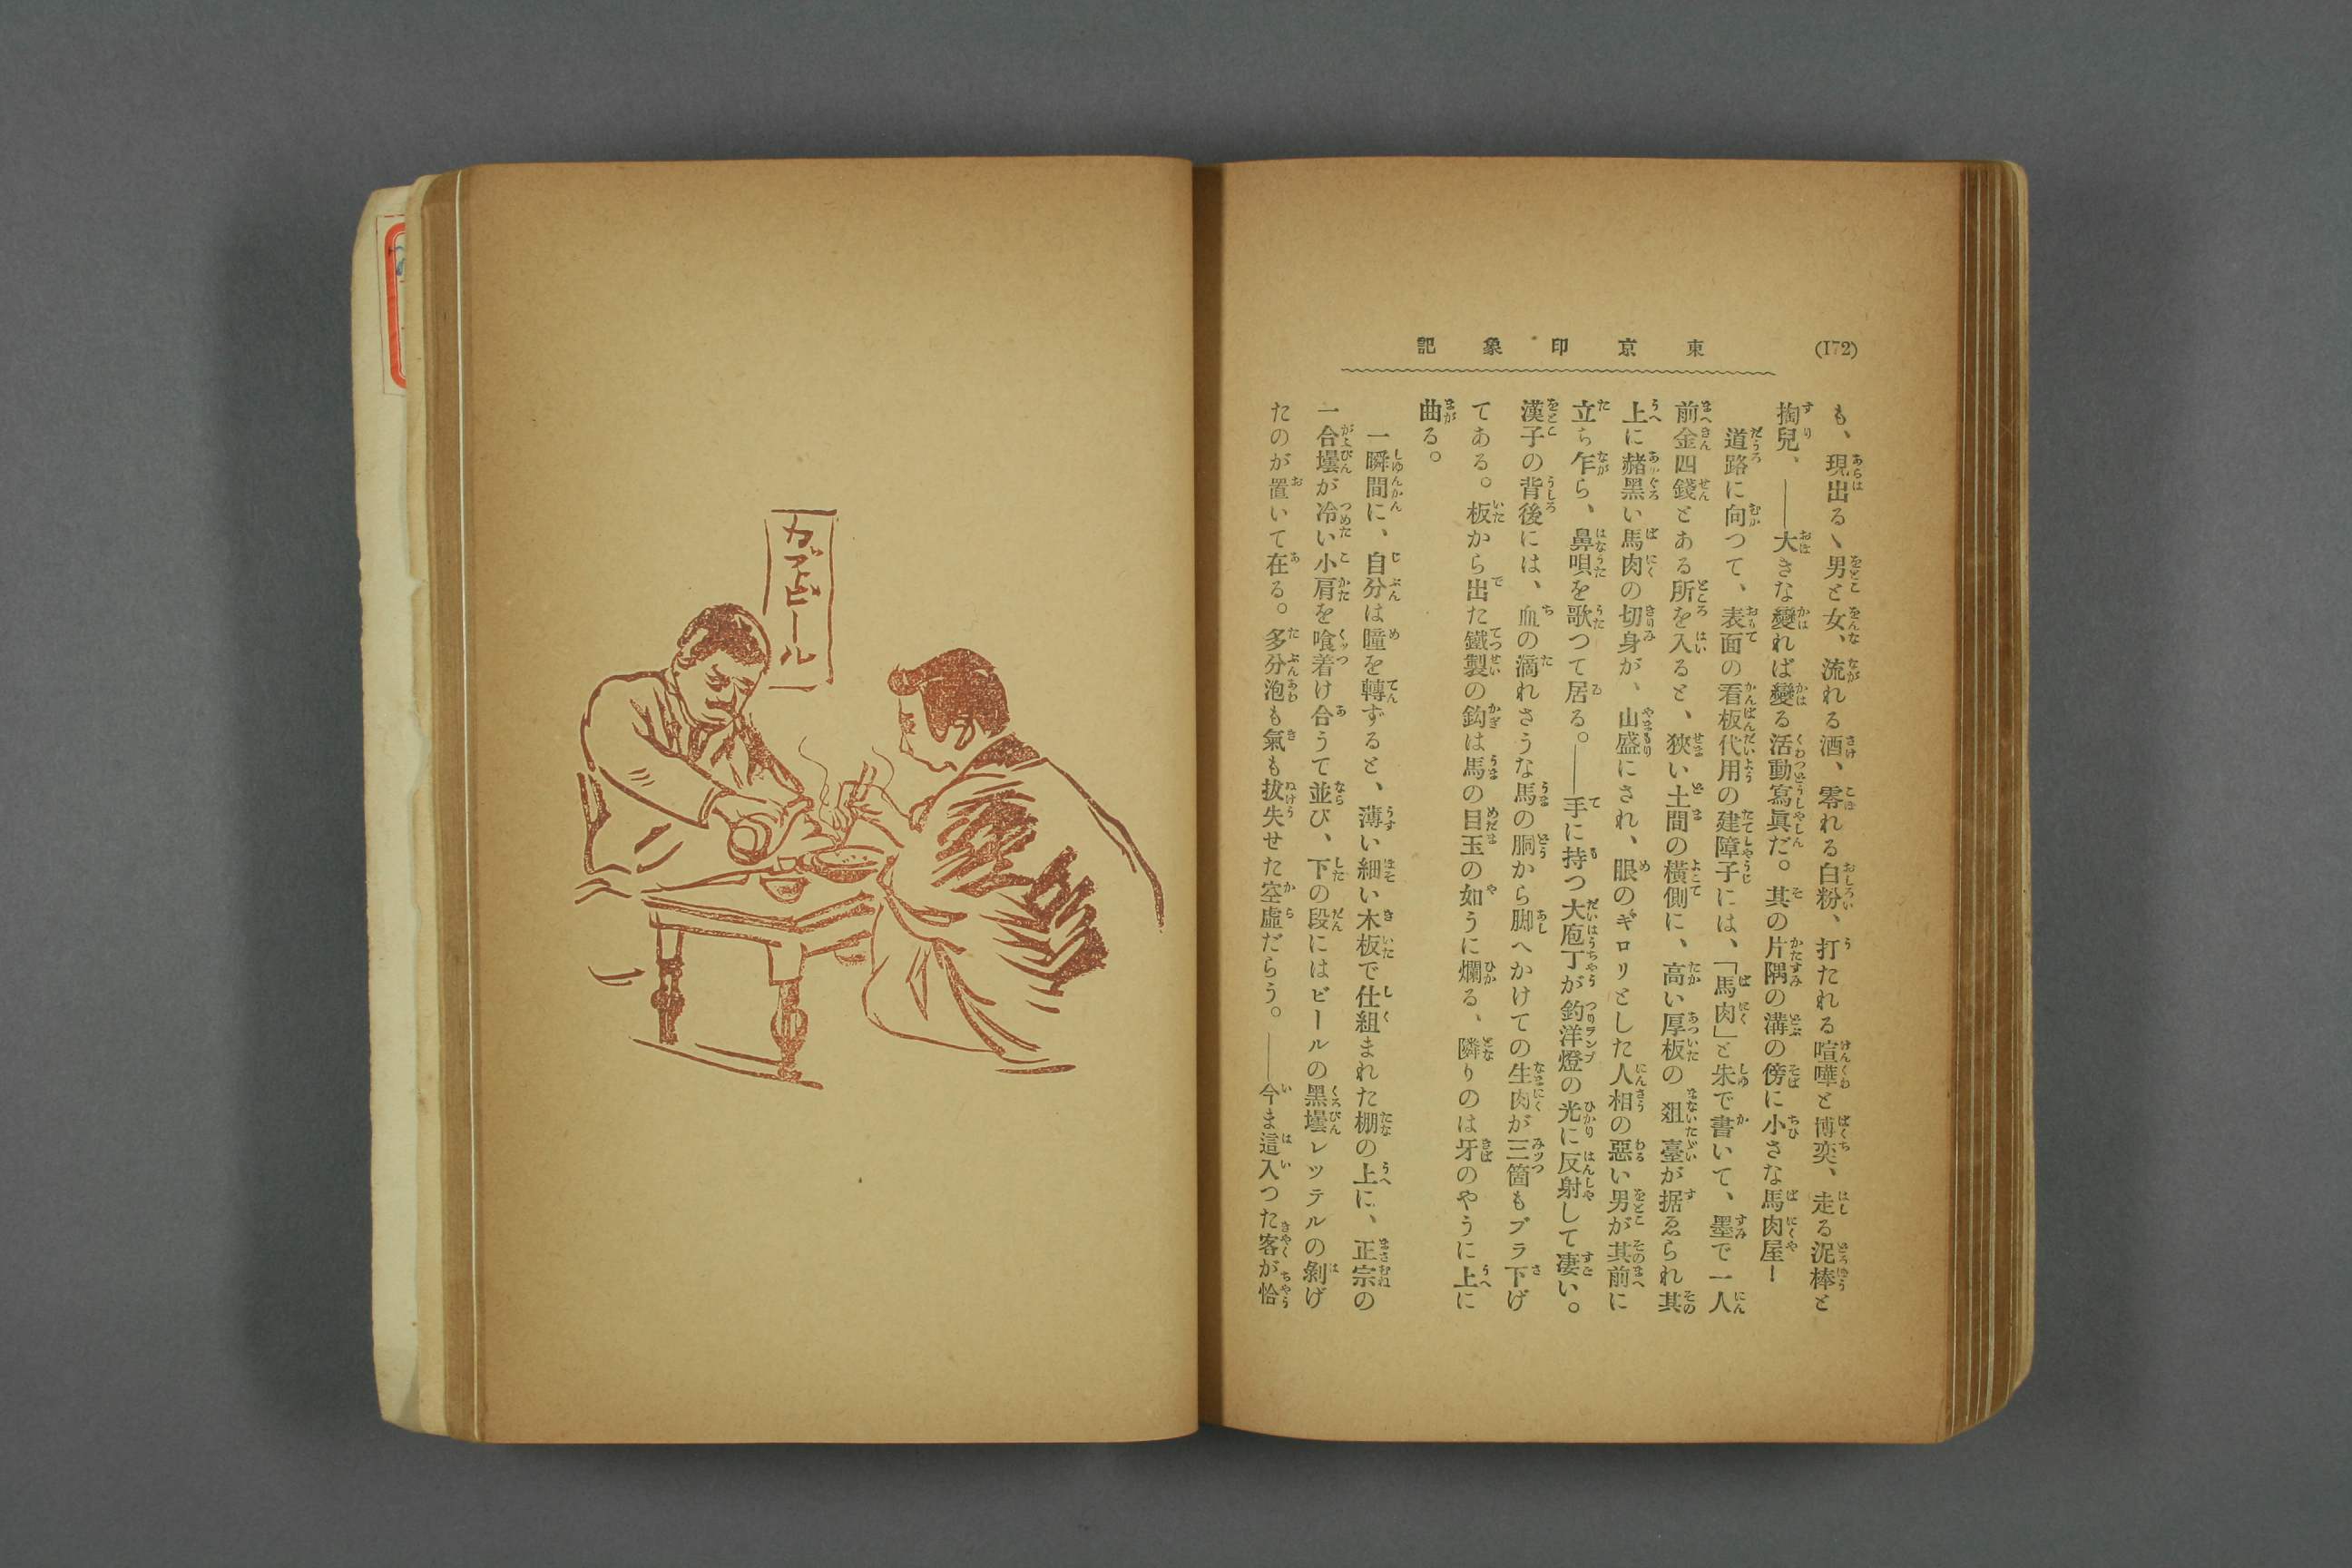 (172)
東京印象記
も、現出るゝ男と女、流れる酒、零れる白粉、打たれる喧嘩と博奕、走る泥棒と
掏兒、――大きな變れば變る活動寫眞だ。其の片隅の溝の傍に小さな馬肉屋！
道路に向つて、表面の看板代用の建障子には、「馬肉」と朱で書いて、墨で一人
前金四錢とある所を入ると、狹い土間の橫側に、高い厚板の俎臺が据ゑられ其
上に赭黑い馬肉の切身が、山盛にされ、眼のギロリとした人相の惡い男が其前に
立ち乍ら、鼻唄を歌つて居る。――手に持つ大庖丁が釣洋燈の光に反射して凄い。
漢子の背後には、血の滴れさうな馬の胴から脚へかけての生肉が三箇もブラ下げ
てある。板から出た鐵製の鈎は馬の目玉の如うに爛る、隣りのは牙のやうに上に
曲る。
一瞬間に、自分は瞳を轉ずると、薄い細い木板で仕組まれた棚の上に、正宗の
一合壜が冷い小肩を喰着け合うて並び、下の段にはビールの黑壜レッテルの剝げ
たのが置いて在る。多分泡も氣も拔失せた空虛だらう。――今ま這入つた客が恰
カブトビール